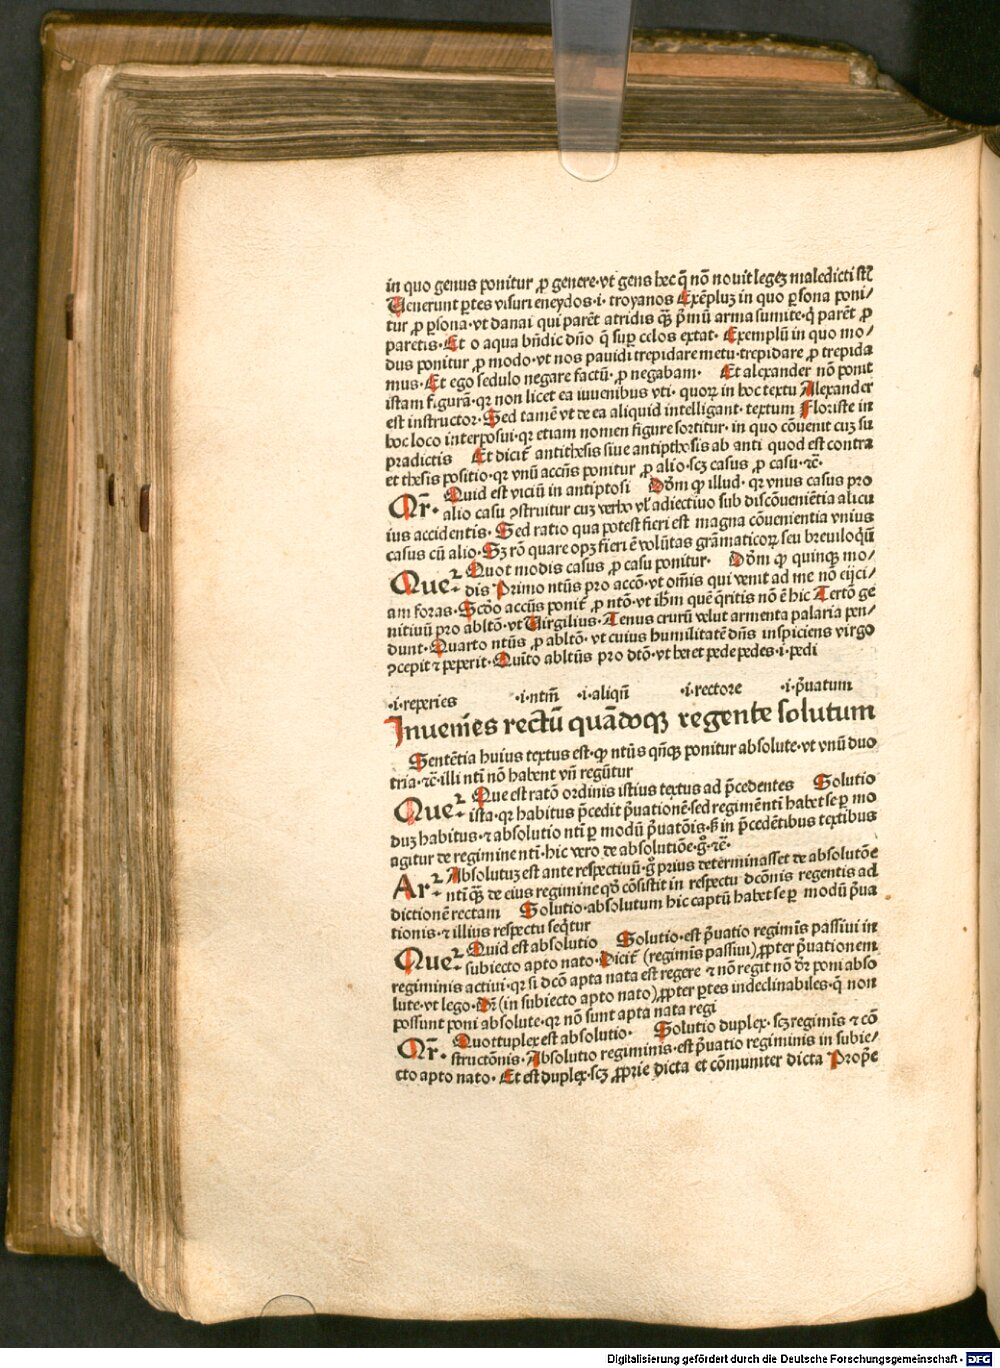 in quo genus ponitur ꝓ genere·vt gens hec q̄ nō nouit legeȝ maledicti st̄t
Uenerunt ꝑtes visuri eneydos·i·troyanos Exēpluȝ in quo ꝑsona poni/
tur ꝓ ꝑsona·vt danai qui parēt atridis qȝ p̄mū arma sumite·q̇ parēt ꝓ
paretis·Et o aqua bn̄dic dn̄o q̄ suꝑ celos extat·Exemplū in quo mo/
dus ponitur ꝓ modo·vt nos pauidi trepidare metu·trepidare ꝓ trepida
mus·Et ego sedulo negare factū·ꝓ negabam· Et alexander nō ponit
istam figurā·qꝛ non licet ea iuuenibus vti·quoꝝ in hoc textu Alexander
est instructor·Sed tamē vt de ea aliquid intelligant·textum Floriste in
hoc loco interposui·qꝛ etiam nomen figure sortitur·in quo cōuenit cuȝ su
pradictis Et dicit̄ antithesis siue antipthosis ab anti quod est contra
et thesis positio·qꝛ vnū accn̄s ponitur ꝓ alio·scȝ casus ꝓ casu·⁊c̄·
Qr̄· Quid est viciū in antiptosi Dōm ꝙ illud·qꝛ vnus casus pro
alio casu ꝯstruitur cuȝ verbo vl̓ adiectiuo sub discōueniētia alicu
ius accidentis·Sed ratio qua potest fieri est magna cōuenientia vnius
casus cū alio·Sȝ rō quare opȝ fieri ē volūtas grāmaticoꝝ seu breuiloq̄ū
Queꝛ· Quot modis casus ꝓ casu ponitur· Dōm ꝙ quinqȝ mo/
dis Primo ntūs pro accō·vt om̄is qui venit ad me nō eijci/
am foras·Scd̄o accūs ponit̄ ꝓ ntō·vt ihm̄ quē q̄ritis nō ē hic Tertō ge
nitiuū pro abltō·vt Uirgilius·Tenus crurū velut armenta palaria pen/
dunt·Quarto ntūs ꝓ abltō·vt cuius humilitatē dn̄s inspiciens virgo
ꝯcepit ⁊ peperit·Quīto abltūs pro dtō·vt heret pede pedes·i·pedi
·i·reperies ·i·ntm̄ ·i·aliqn̄ ·i·rectore ·i·p̄uatum
Inuenies rectū quādoqȝ regente solutum
Sentētia huius textus est·ꝙ ntūs qn̄qȝ ponitur absolute·vt vnū duo
tria·⁊c̄·illi ntī nō habent vn̄ regūtur
Queꝛ· Que est ratō ordinis istius textus ad p̄cedentes Solutio
ista·qꝛ habitus p̄cedit p̄uationē·sed regimē ntī habet se ꝑ mo
duȝ habitus·⁊ absolutio ntī ꝑ modū p̄uatōis·ß in p̄cedētibus textibus
agitur de regimine ntī·hic vero de absolutiōe·g̊·⁊c̄·
Arꝛ· Absolutuȝ est ante respectiuū·g̊ prius determinasset de absolutōe
ntī qȝ de eius regimine qd̄ cōsistit in respectu dcōnis regentis ad
dictionē rectam Solutio·absolutum hic captū habet se ꝑ modū p̄ua
tionis·⁊ illius respectu seq̄tur
Queꝛ· Quid est absolutio Solutio·est p̄uatio regimīs passiui in
subiecto apto nato·Dicit̄ (regimīs passiui) ꝓpter p̄uationem
regiminis actiui·qꝛ si dcō apta nata est regere ⁊ nō regit nō dꝛ poni abso
lute·vt lego·Dꝛ (in subiecto apto nato) ꝓpter ꝑtes indeclinabiles·q̄ non
possunt poni absolute·qꝛ nō sunt apta nata regi
Qr̄· Quottuplex est absolutio· Solutio duplex·scȝ regimīs ⁊ cō
structōnis·Absolutio regiminis·est p̄uatio regiminis in subie/
cto apto nato· Et est duplex·scȝ ꝓprie dicta et cōmuniter dicta Prop̄e
Digitalisierung gefördert durch die Deutsche Forschungsgemeinschaft - DFG